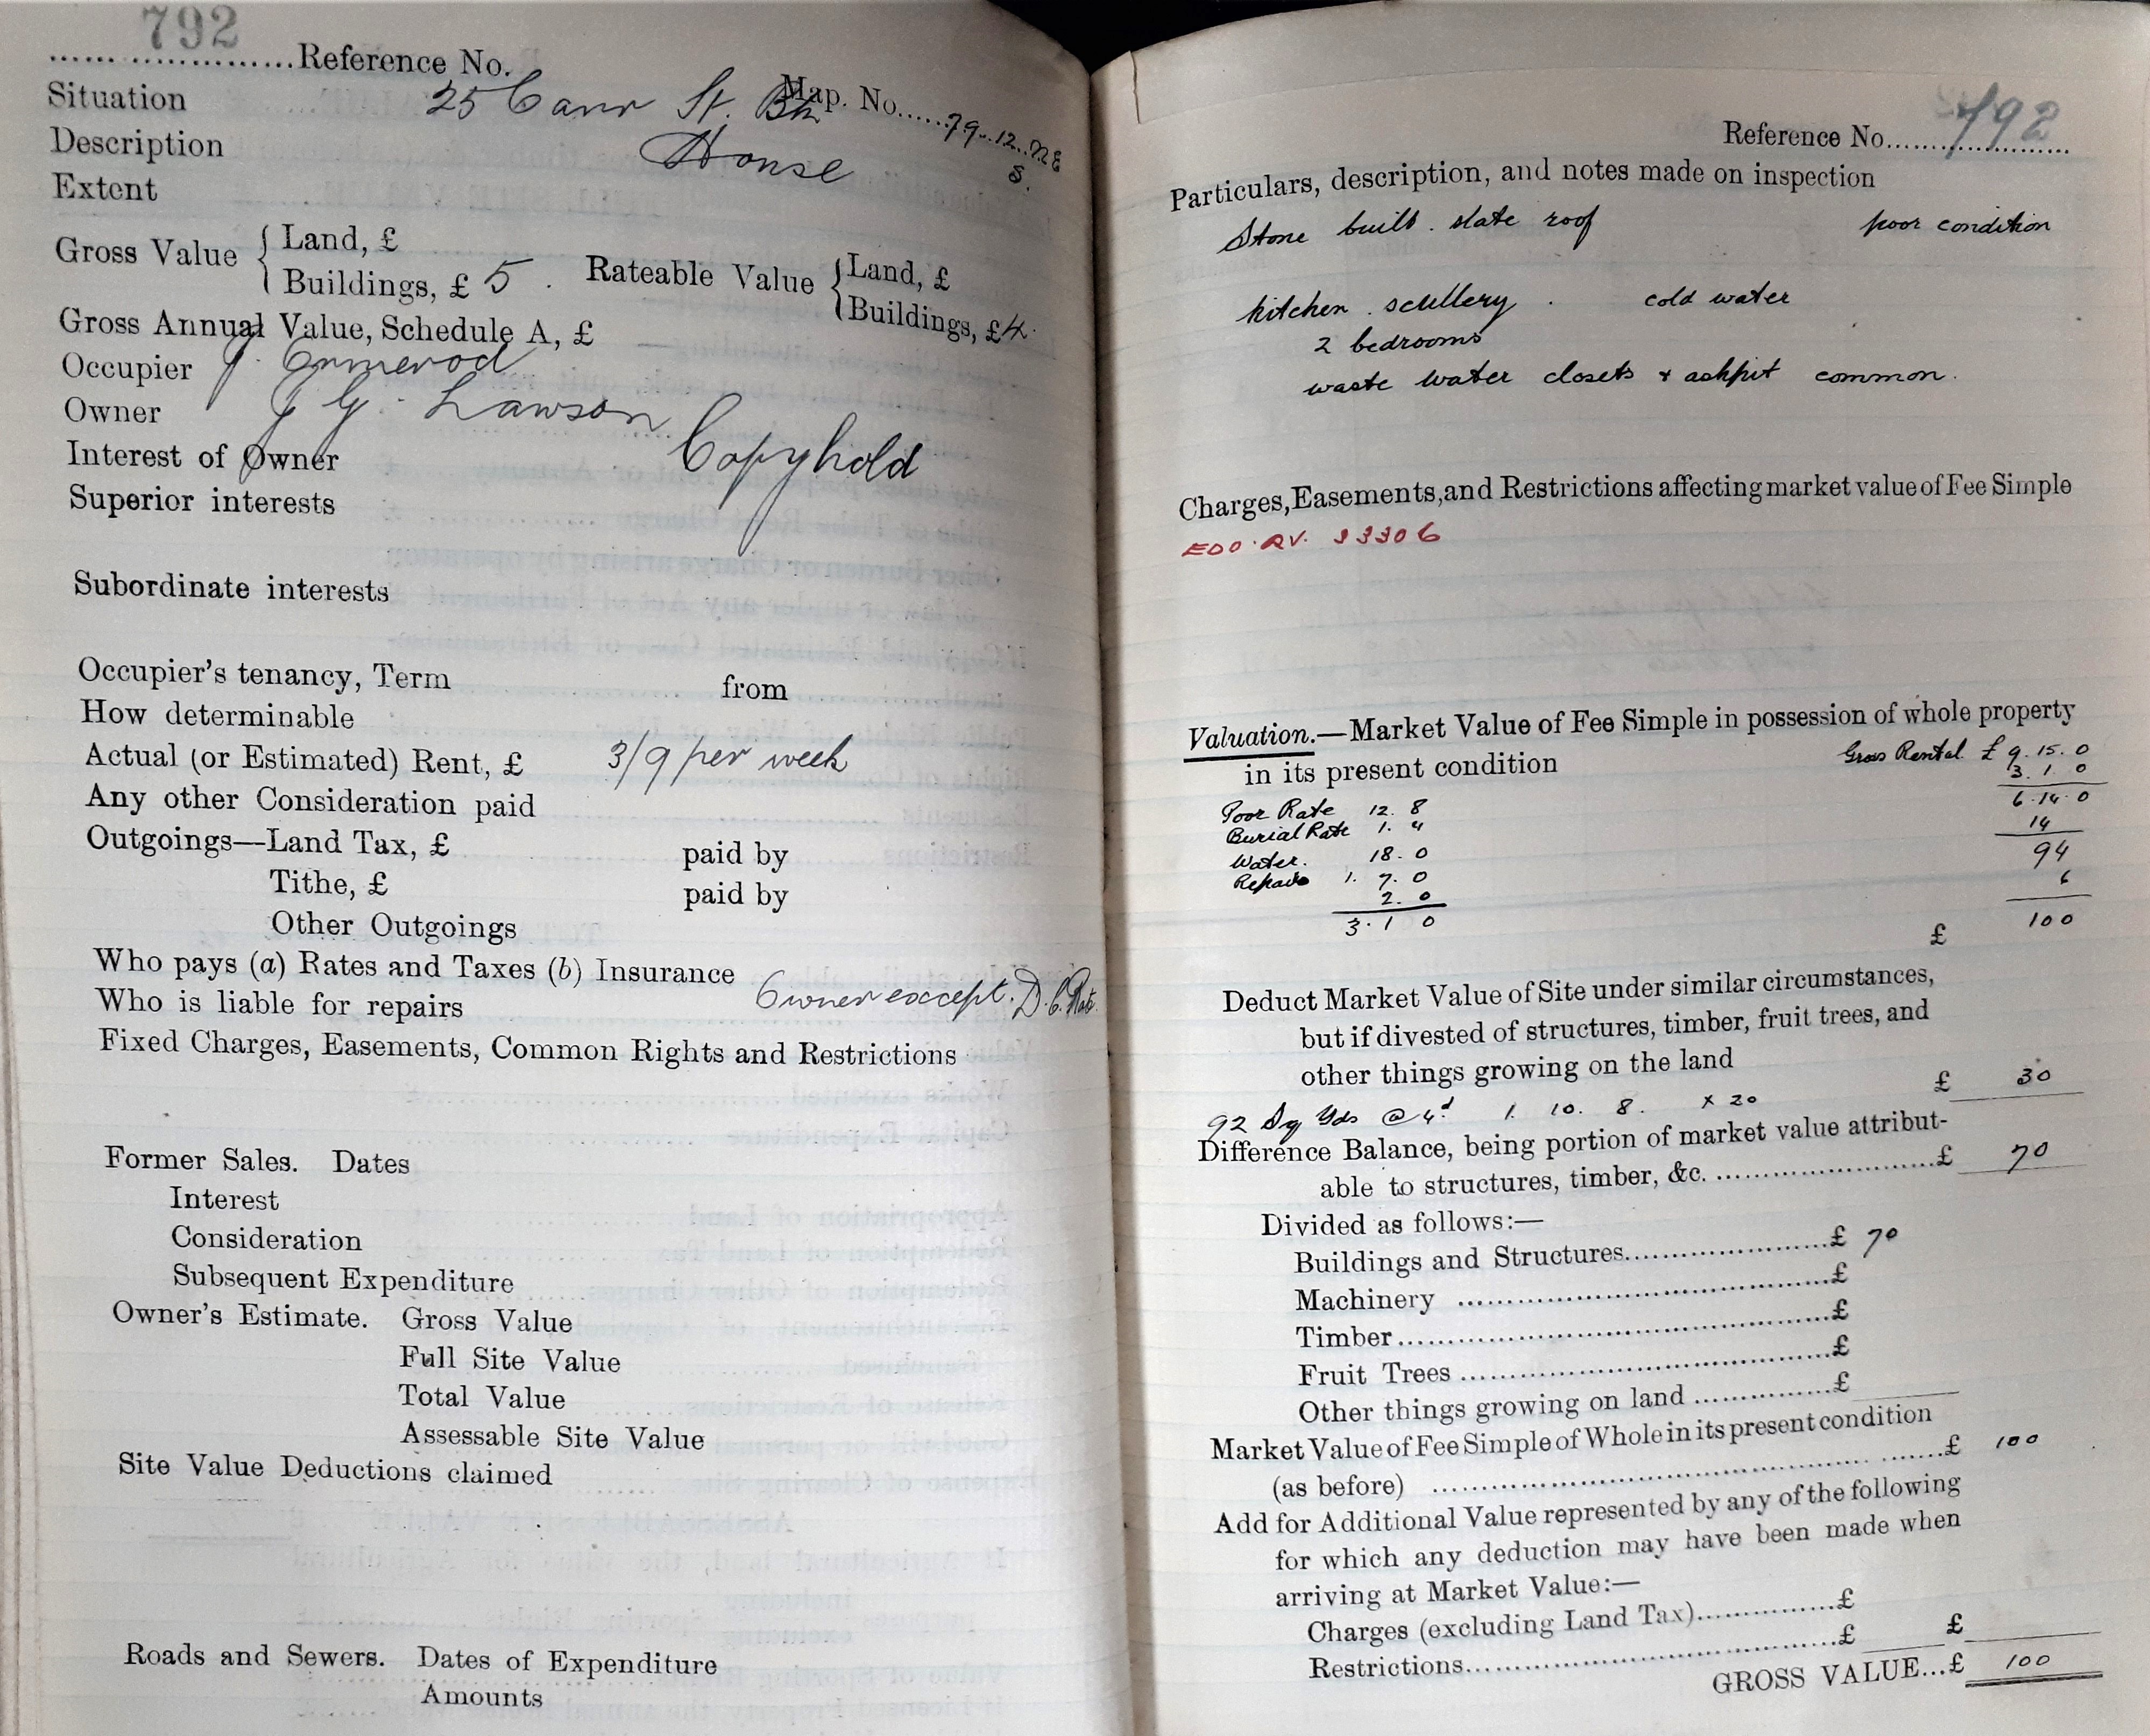 792
.....................Reference No.
Map. No......79.12.NE
S.
Situation 25 Carr St. Bk
Description House
Extent
Gross Value { Land, £
Buildings, £ 5 . Rateable Value { Land, £
Buildings, £4.
Gross Annual Value, Schedule A, £
Occupier J. Ormerod
Owner J G. Lawson
Interest of Owner Copyhold
Superior interests
Subordinate interests
Occupier's tenancy, Term from
How determinable
Actual (or Estimated) Rent, £ 3/9 per week
Any other Consideration paid
Outgoings—Land Tax, £ paid by
Tithe, £ paid by
Other Outgoings
Who pays (a) Rates and Taxes (b) Insurance
Who is liable for repairs Owner except. D.C. Rate
Fixed Charges, Easements, Common Rights and Restrictions
Former Sales. Dates
Interest
Consideration
Subsequent Expenditure
Owner's Estimate. Gross Value
Full Site Value
Total Value
Assessable Site Value
Site Value Deductions claimed
Roads and Sewers. Dates of Expenditure
Amounts
Reference No....792
Particulars, description, and notes made on inspection
Stone built. slate roof poor condition
kitchen . scullery . cold water
2 bedrooms
waste water closets + ashpit common.
Charges, Easements, and Restrictions affecting market value of Fee Simple
EDO. RV. 33306
Valuation.—Market Value of Fee Simple in possession of whole property
in its present condition Gross Rental £ 9. 15. 0
3. 1. 0
Poor Rate 12. 8 6. 14. 0
Burial Rate 1. 4 14
Water. 18. 0 94
Repairs 1. 7. 0 6
2. 0
3. 1 0 £ 100
Deduct Market Value of Site under similar circumstances,
but if divested of structures, timber, fruit trees, and
other things growing on the land £ 30
92 Sq Yds @ 4d 1. 10. 8. x 20
Difference Balance, being portion of market value attribut-
able to structures, timber, &c. .........................£ 70
Divided as follows:—
Buildings and Structures.......................£ 70
Machinery .......................£
Timber.......................£
Fruit Trees .......................£
Other things growing on land ................£
Market Value of Fee Simple of Whole in its present condition
(as before) .......................£ 100
Add for Additional Value represented by any of the following
for which any deduction may have been made when
arriving at Market Value:—
Charges (excluding Land Tax)................£
Restrictions.......................£ £
GROSS VALUE...£ 100